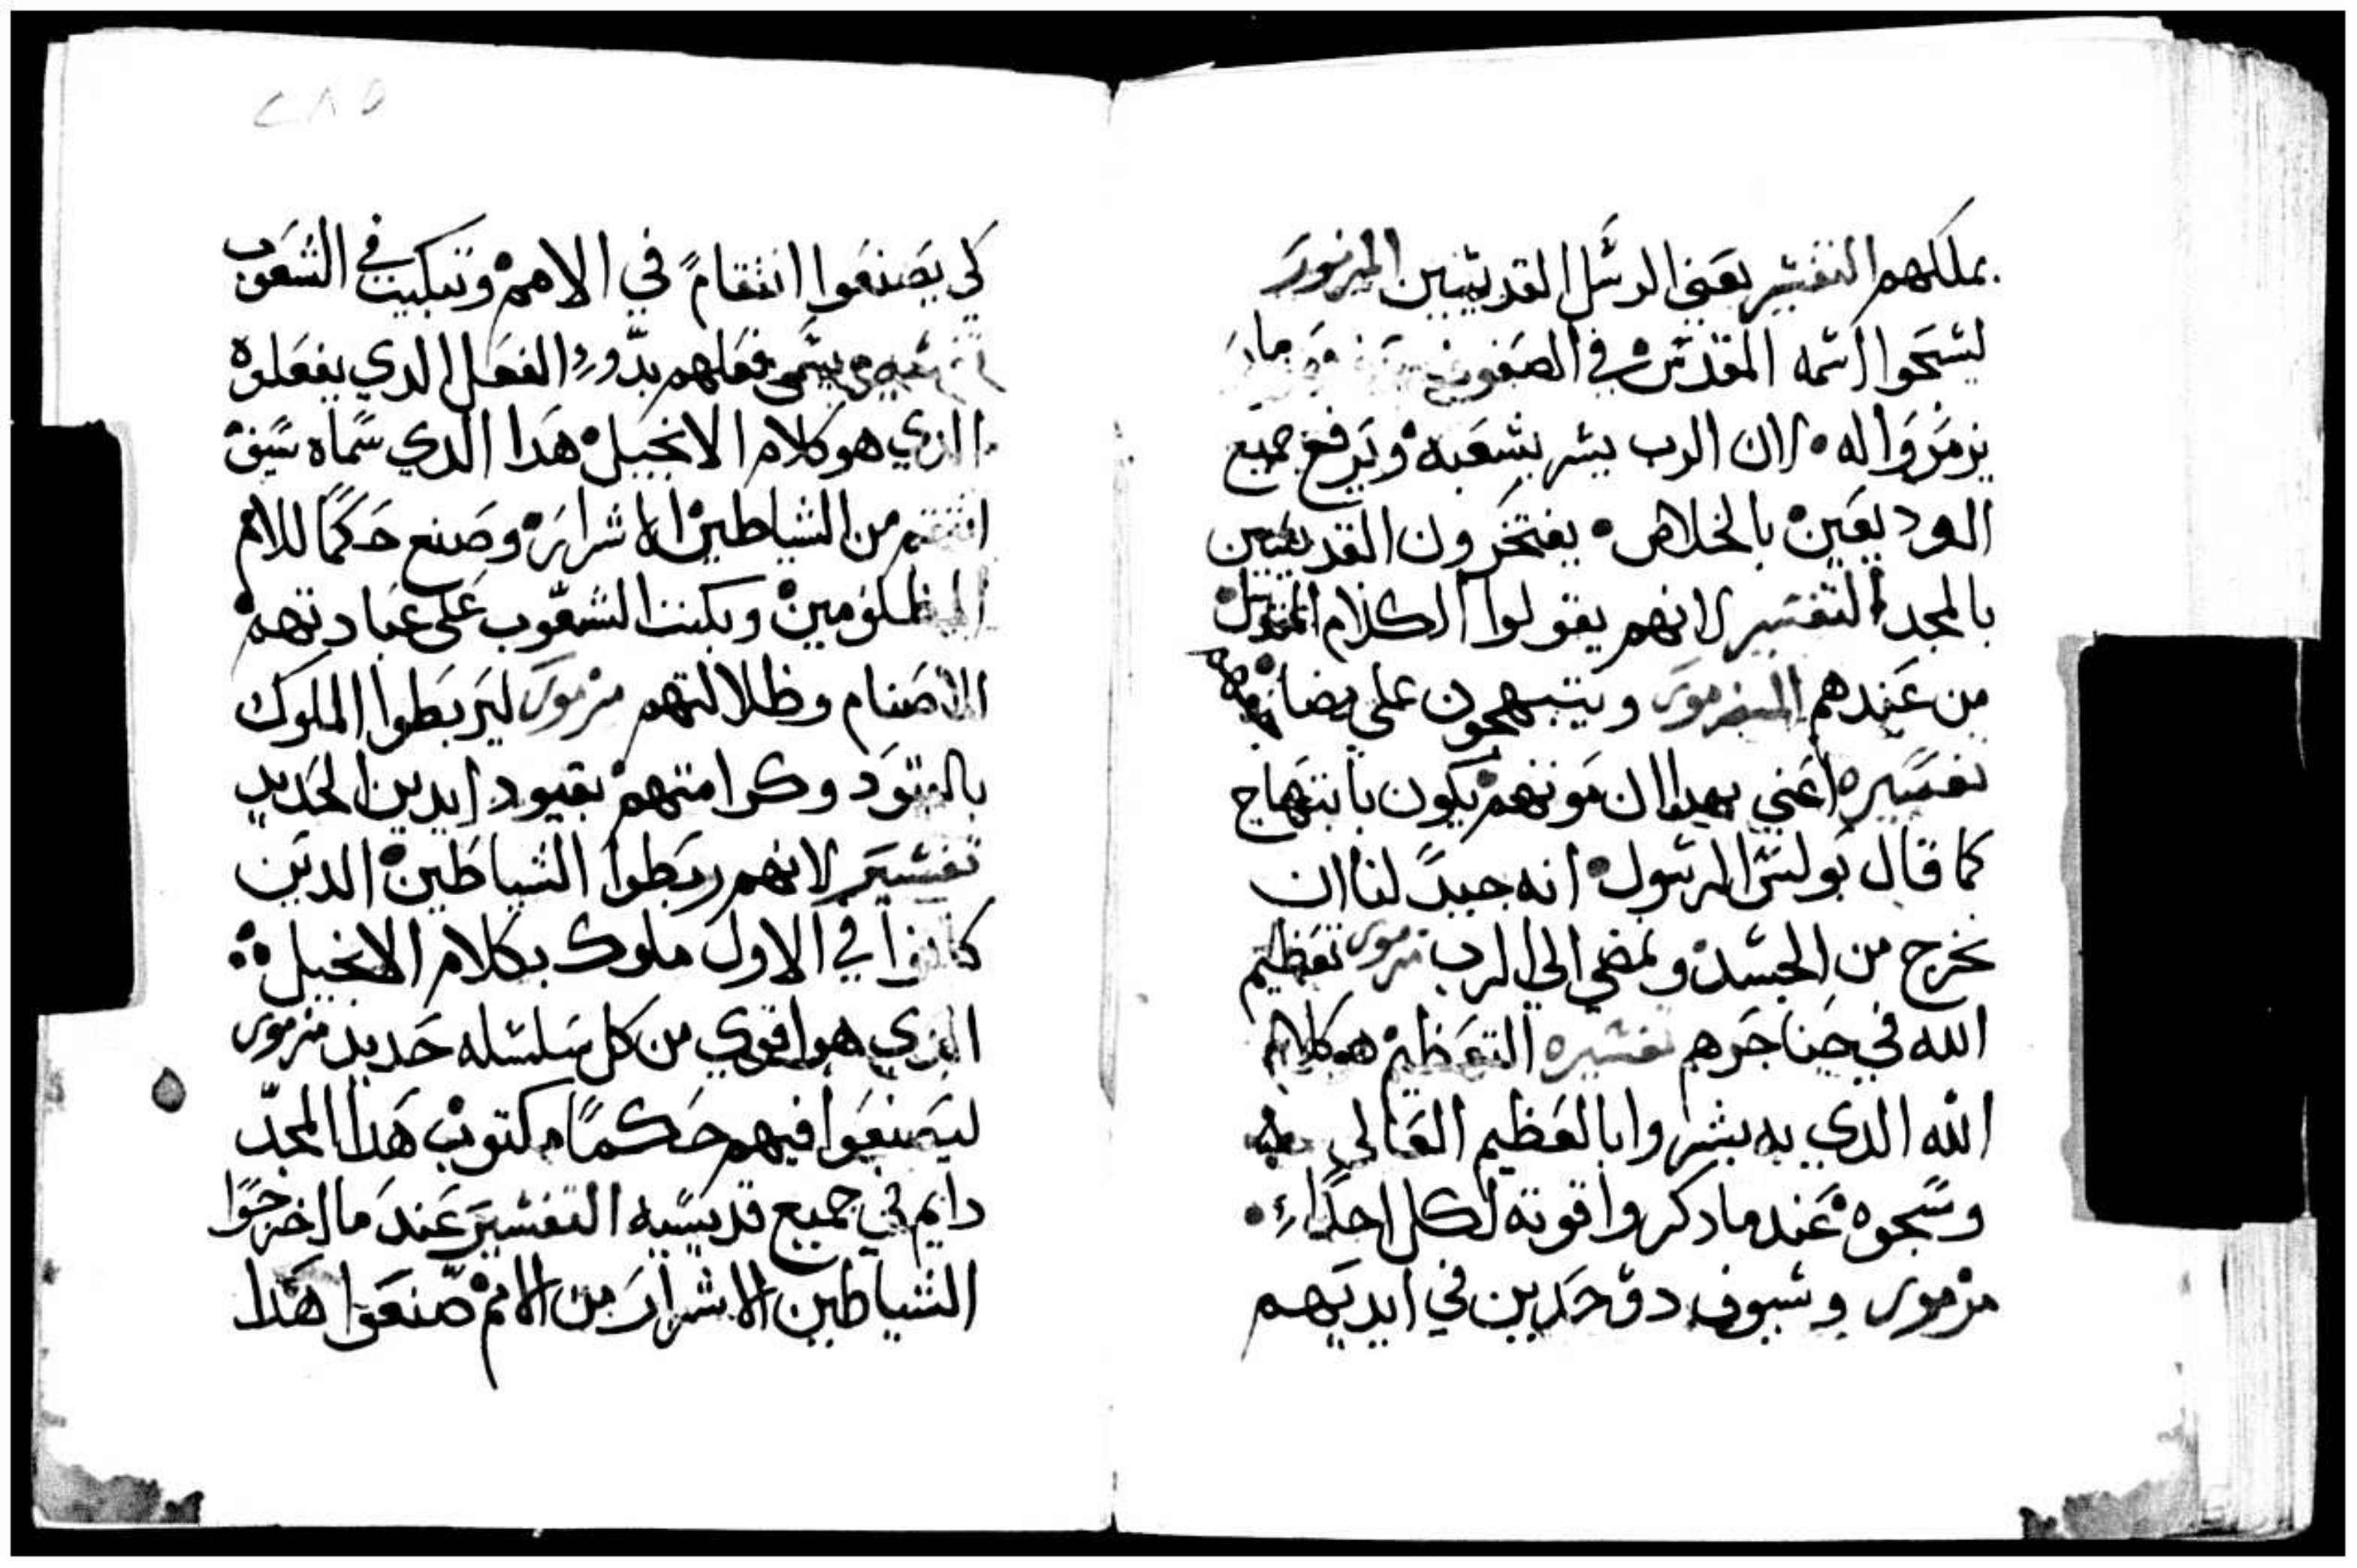 بملكهم التفسير يعني الرسل القديسين المزمور
ليسبحوا اسمه المقدس في الصفوف
يزمروا له ان الرب يسر بشعبه ويرفع جميع
الوديعين بالخلاص يفتخرون القديسين
بالمجد التفسير لانهم يقولوا الكلام
من عندهم المزمور ويتبهجون على مضاجعهم
تفسيره اعني بهدا ان موتهم يكون بابتهاج
كما قال بولس الرسول انه جيدً لنا ان
نخرج من الجسد ونمضي الي الرب مزمور تعظيم
الله في حناجرهم تفسيره التعظيم هو كلام
الله الدي به بشروا بالعظيم العالي
وسبحوه عند ما دكروا قوته لكل احد
مزمور وسيوف دو حدين في ايديهم
٢٨٥
كي يصنعوا انتقامً في الامم وتبكيت في الشعوب
يسمى فعلهم الفعل الدي يفعلوه
الدي هو كلام الانجيل هدا الدي سماه سيف
انتقم من الشياطين الاشرار وصنع حكمًا للامم
المظلومين وبكت الشعوب على عبادتهم
الاصنام وظلالتهم مزمور ليربطوا الملوك
بالقيود وكرامتهم بقيود ايدين الحديد
تفسير لانهم ربطوا الشياطين الدين
كانوا في الاول ملوك بكلام الانجيل
الدي هو اقوي من كل سلسله حديد مزمور
ليصنعوا فيهم حكمًا مكتوب هدا المجد
دايم في جميع قديسيه التفسير عند ما اخرجوا
الشياطين الاشرار من الامم صنعوا هدا